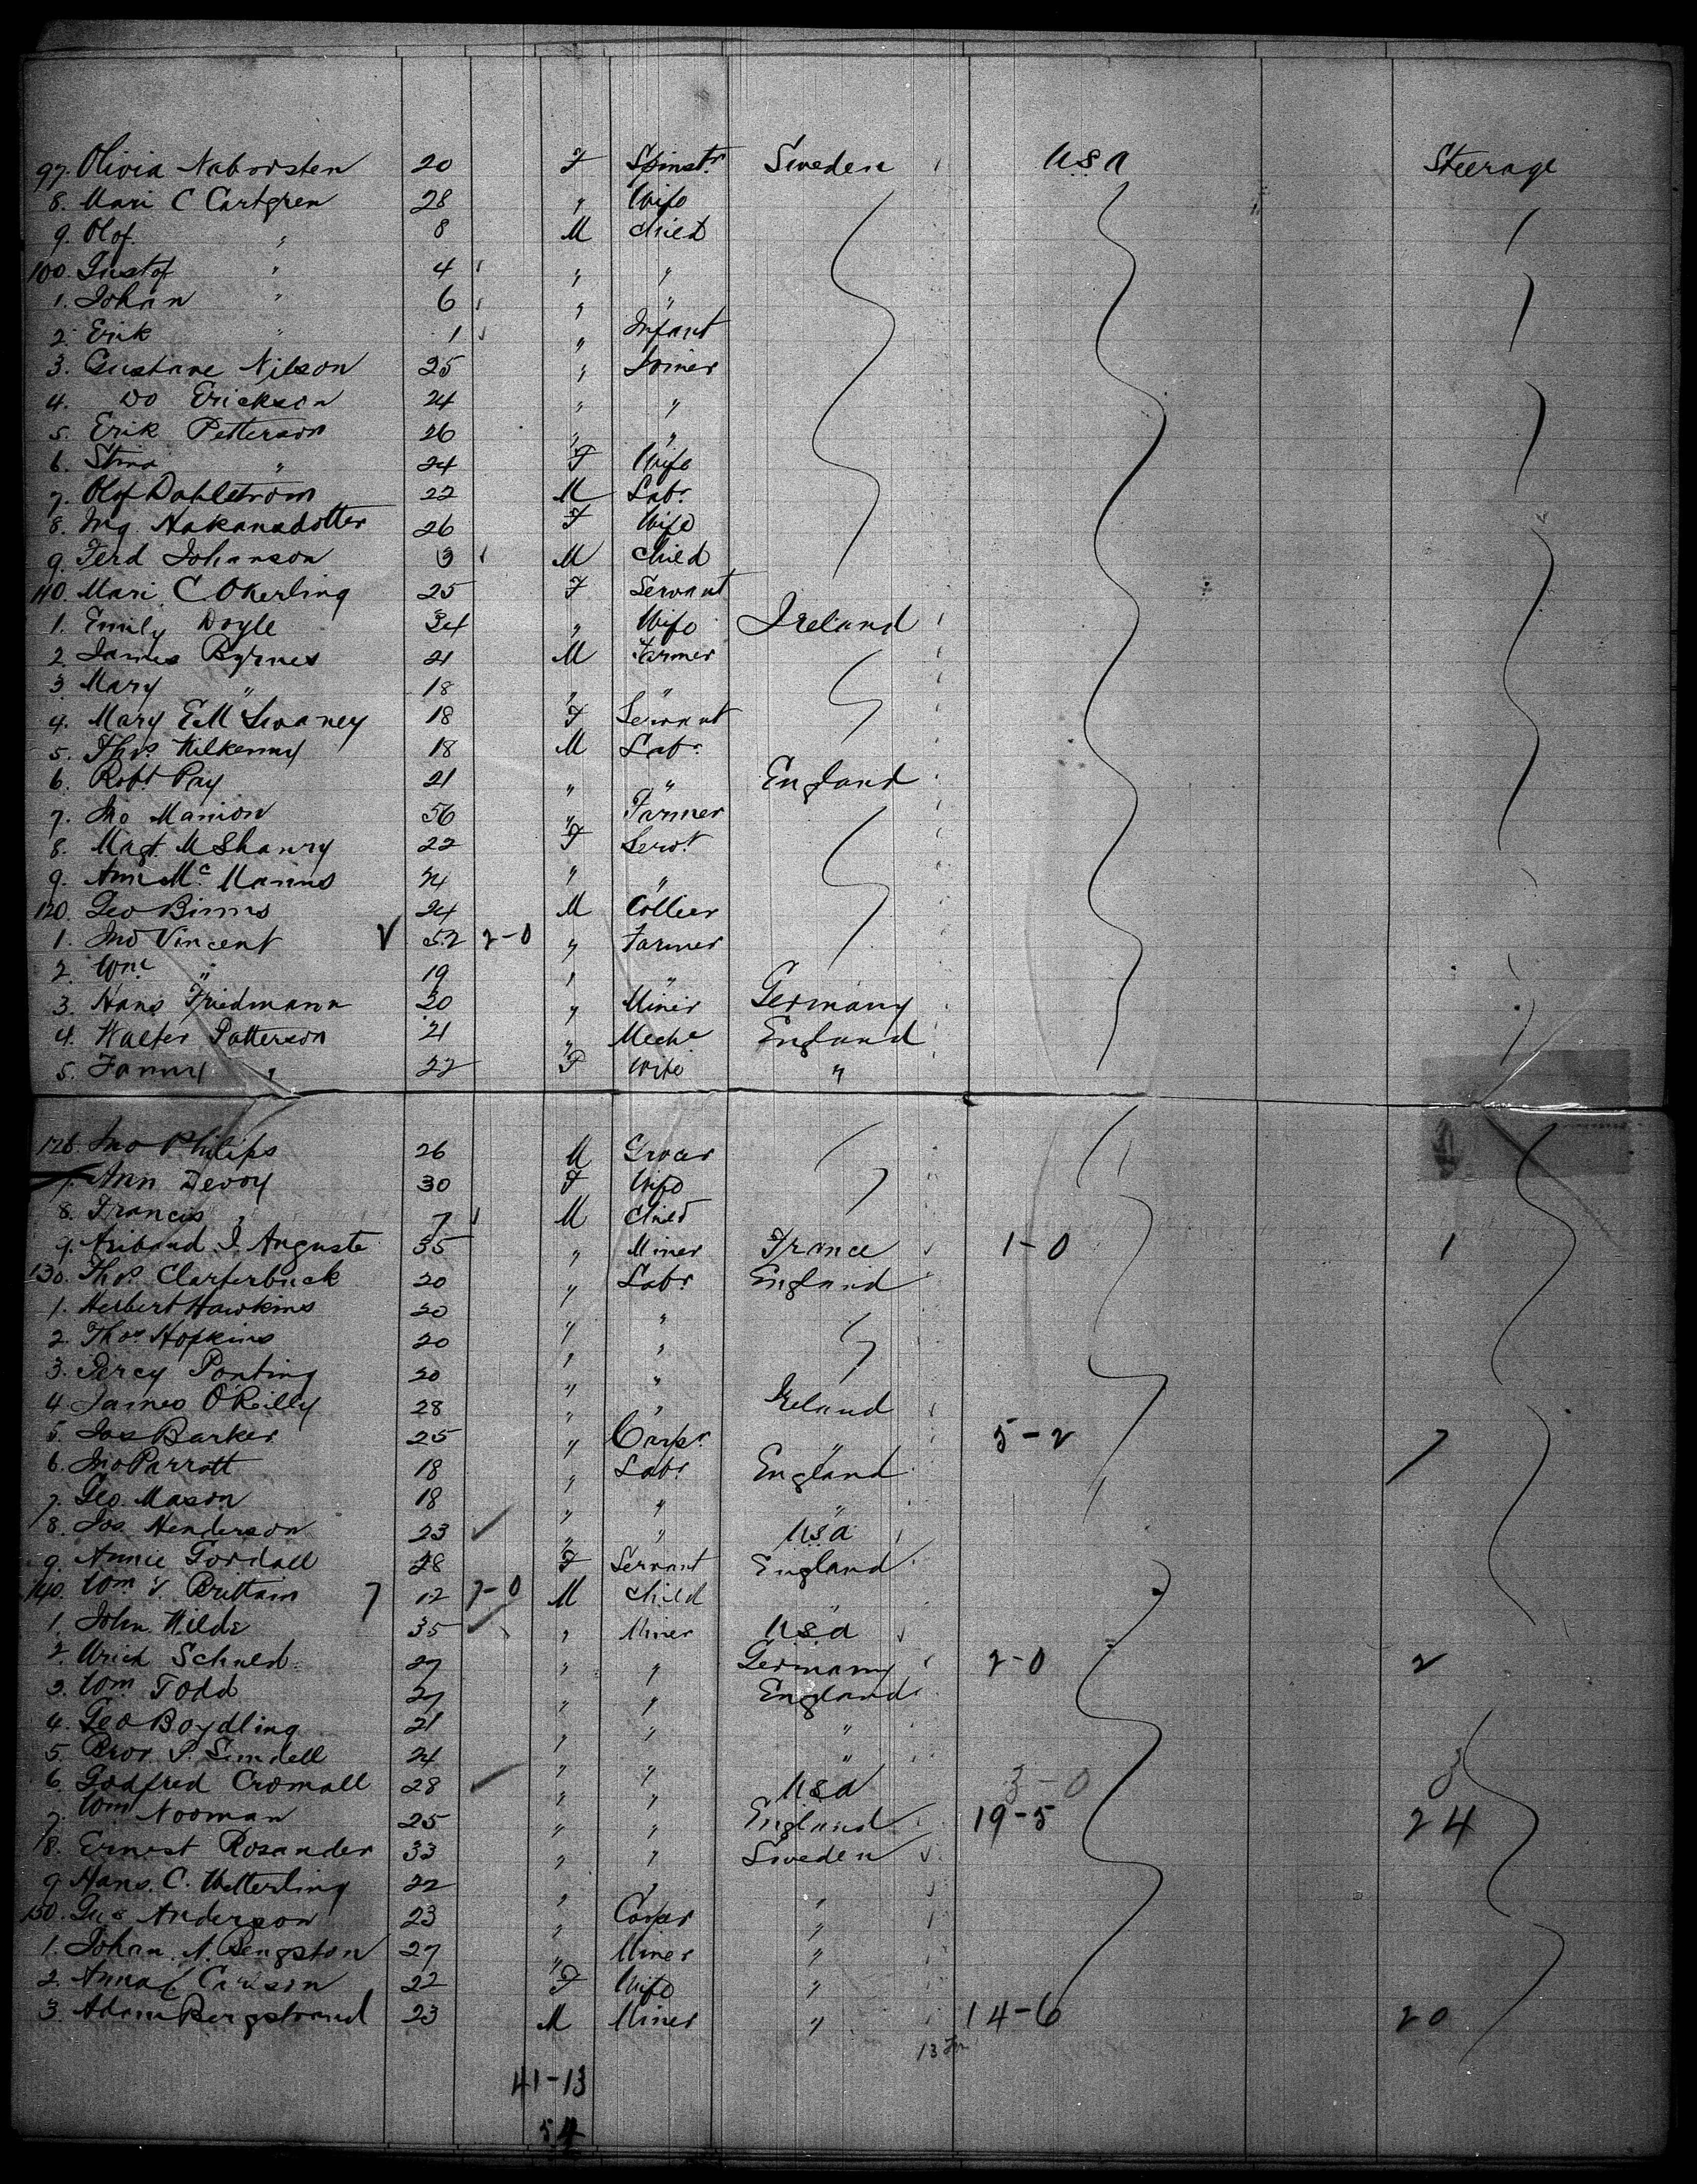 97. Olivia Naborsten 20 F Spinstr. Sweden USA Steerage
8. Mari C Cartgren 28 " Wife
9. Olof " 8 M Child
100. Gustof " 4 " "
1. Johan " 6 " "
2. Erik " 1 " Infant
3. Gustave Nilson 25 " Joiner
4. Do Erickson 24 " "
5. Erik Petterson 26 " "
6. Stina " 24 F Wife
7. Olof Dahlstrom 22 M Labr.
8. Ing. Hakansdotter 26 F Wife
9. Ferd Johanson 3 M Child
110. Mari C Okerling 25 F Servant
1. Emily Doyle 34 " Wife Ireland
2. James Byrnes 21 M Farmer
3. Mary " 18 " "
4. Mary E McSwaney 18 F Servant
5. Thos. Kilkenny 18 M Labr.
6. Robt. Pay 21 " " England
7. Jno Manion 56 " Farmer
8. Magt. McSharry 22 F Servt.
9. Ann Mc. Manus 24 " "
120. Geo Binns 24 M Collier
1. Jno Vincent V 52 2-0 " Farmer
2. Wm. " 19 " "
3. Hans Friedmann 30 " Miner Germany
4. Walter Patterson 21 " Mechc England
5. Fanny " 22 F Wife "
126. Jno Philips 26 M Grocer
7. Ann Devoy 30 F Wife
8. Francis " 7 M Child
9. J. Auguste 35 " Miner France 1-0 1
130. Thos. Clarterbuck 20 " Labr England
1. Herbert Hawkins 20 " "
2. Thos. Hopkins 20 " "
3. Percy Ponting 20 " "
4. James O'Reilly 28 " " Ireland
5. Jas Barker 25 " Carpr. " 5-2 7
6. Jno Parrott 18 " Labr England
7. Geo. Mason 18 " " "
8. Jos. Henderson 23 " " USA
9. Annie Tordall 28 F Servant England
140. Wm Brittain 7 12 7-0 M Child "
1. John Wilde 35 " Miner USA
2. Schuld 27 " " Germany 2-0 2
3. Wm Todd 27 " " England
4. Geo Boydling 21 " " "
5. Bror P. Lindell 24 " " "
6. Godfred Cromall 28 " " USA 3-0 3
7. Wm Nooman 25 " " England 19-5 24
8. Ernest Rosander 33 " " Sweden
9. Hans. C. Wetterling 22 " " "
150. Gus Anderson 23 " Carpr "
1. Johan. A. Bengston 27 " Miner "
2. Anna C Carlson 22 F Wife "
3. Adam Bergstrand 23 M Miner " 14-6 20
13
41-13
54